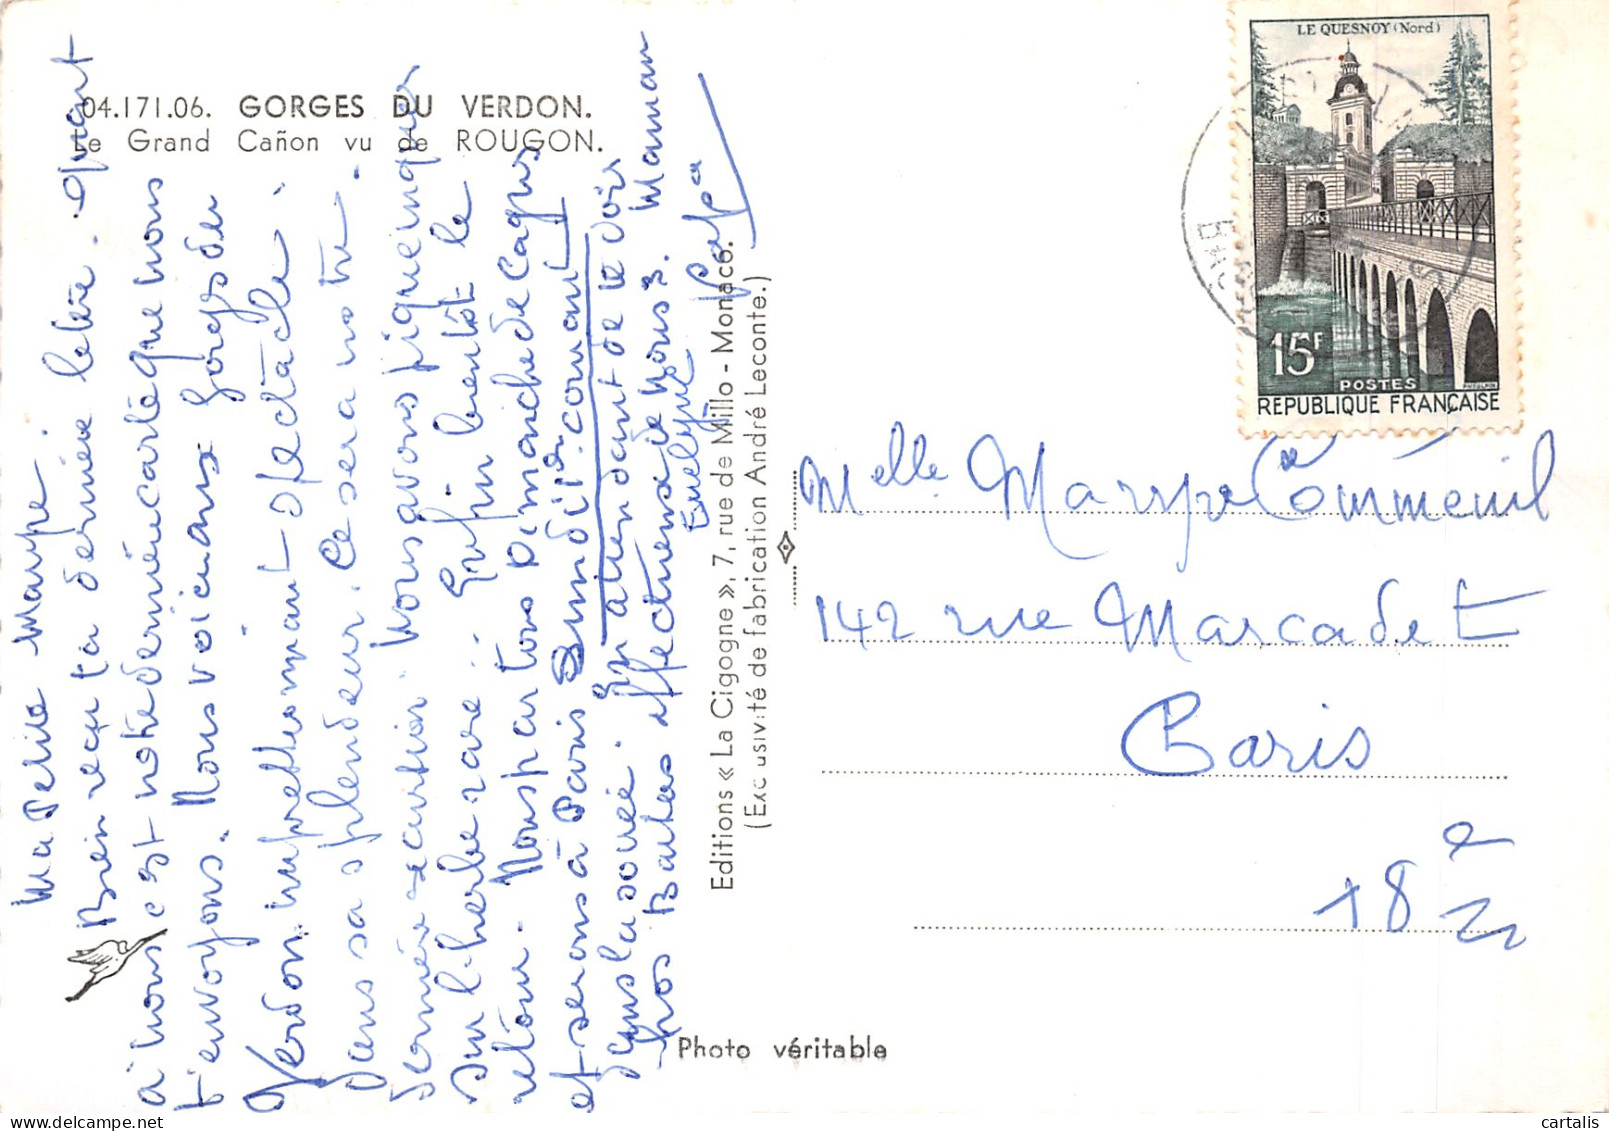 04.171.06. GORGES DU VERDON.
Le Grand Cañon vu de ROUGON.
Ma Petite Marype
Bien reçu ta dernière lettre. Quant
à nous c'est notre dernière carte que nous
t'envoyons. Nous voici aux Gorges du
Verdon. impressionnant spectacle.
dans sa splendeur. Ce sera notre
dernière excursion. Nous avons pique niquer
sur l'herbe rare.. Enfin bientôt le
retour. Nous partons Dimanche de Cagnes
et serons à Paris Lundi soir. courant
dans la soirée. En attendant de te voir
nos Baisers affectueux de nous 3. Maman
Evelyne Papa
Editions « La Cigogne », 7, rue de Millo - Monaco.
(Exclusivité de fabrication André Leconte.)
Photo véritable
LE QUESNOY (Nord)
15F
POSTES
REPUBLIQUE FRANÇAISE
Melle Marype Comménil
142 rue Marcadet
Paris
18e
cartalis